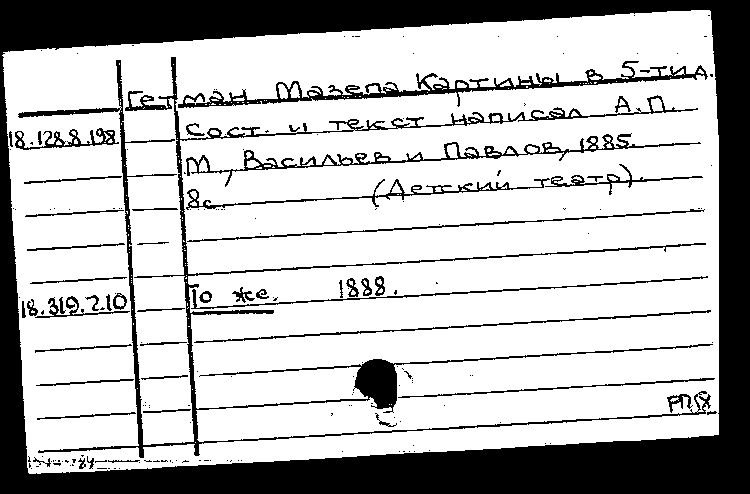 Гетман Мазепа Картины в 5-ти д.
18.128.8.198 Сост. и текст написал А.П.
М, Васильев и Павлов, 1885.
8с. (Детский театр).
18.319.2.10 То же. 1888.